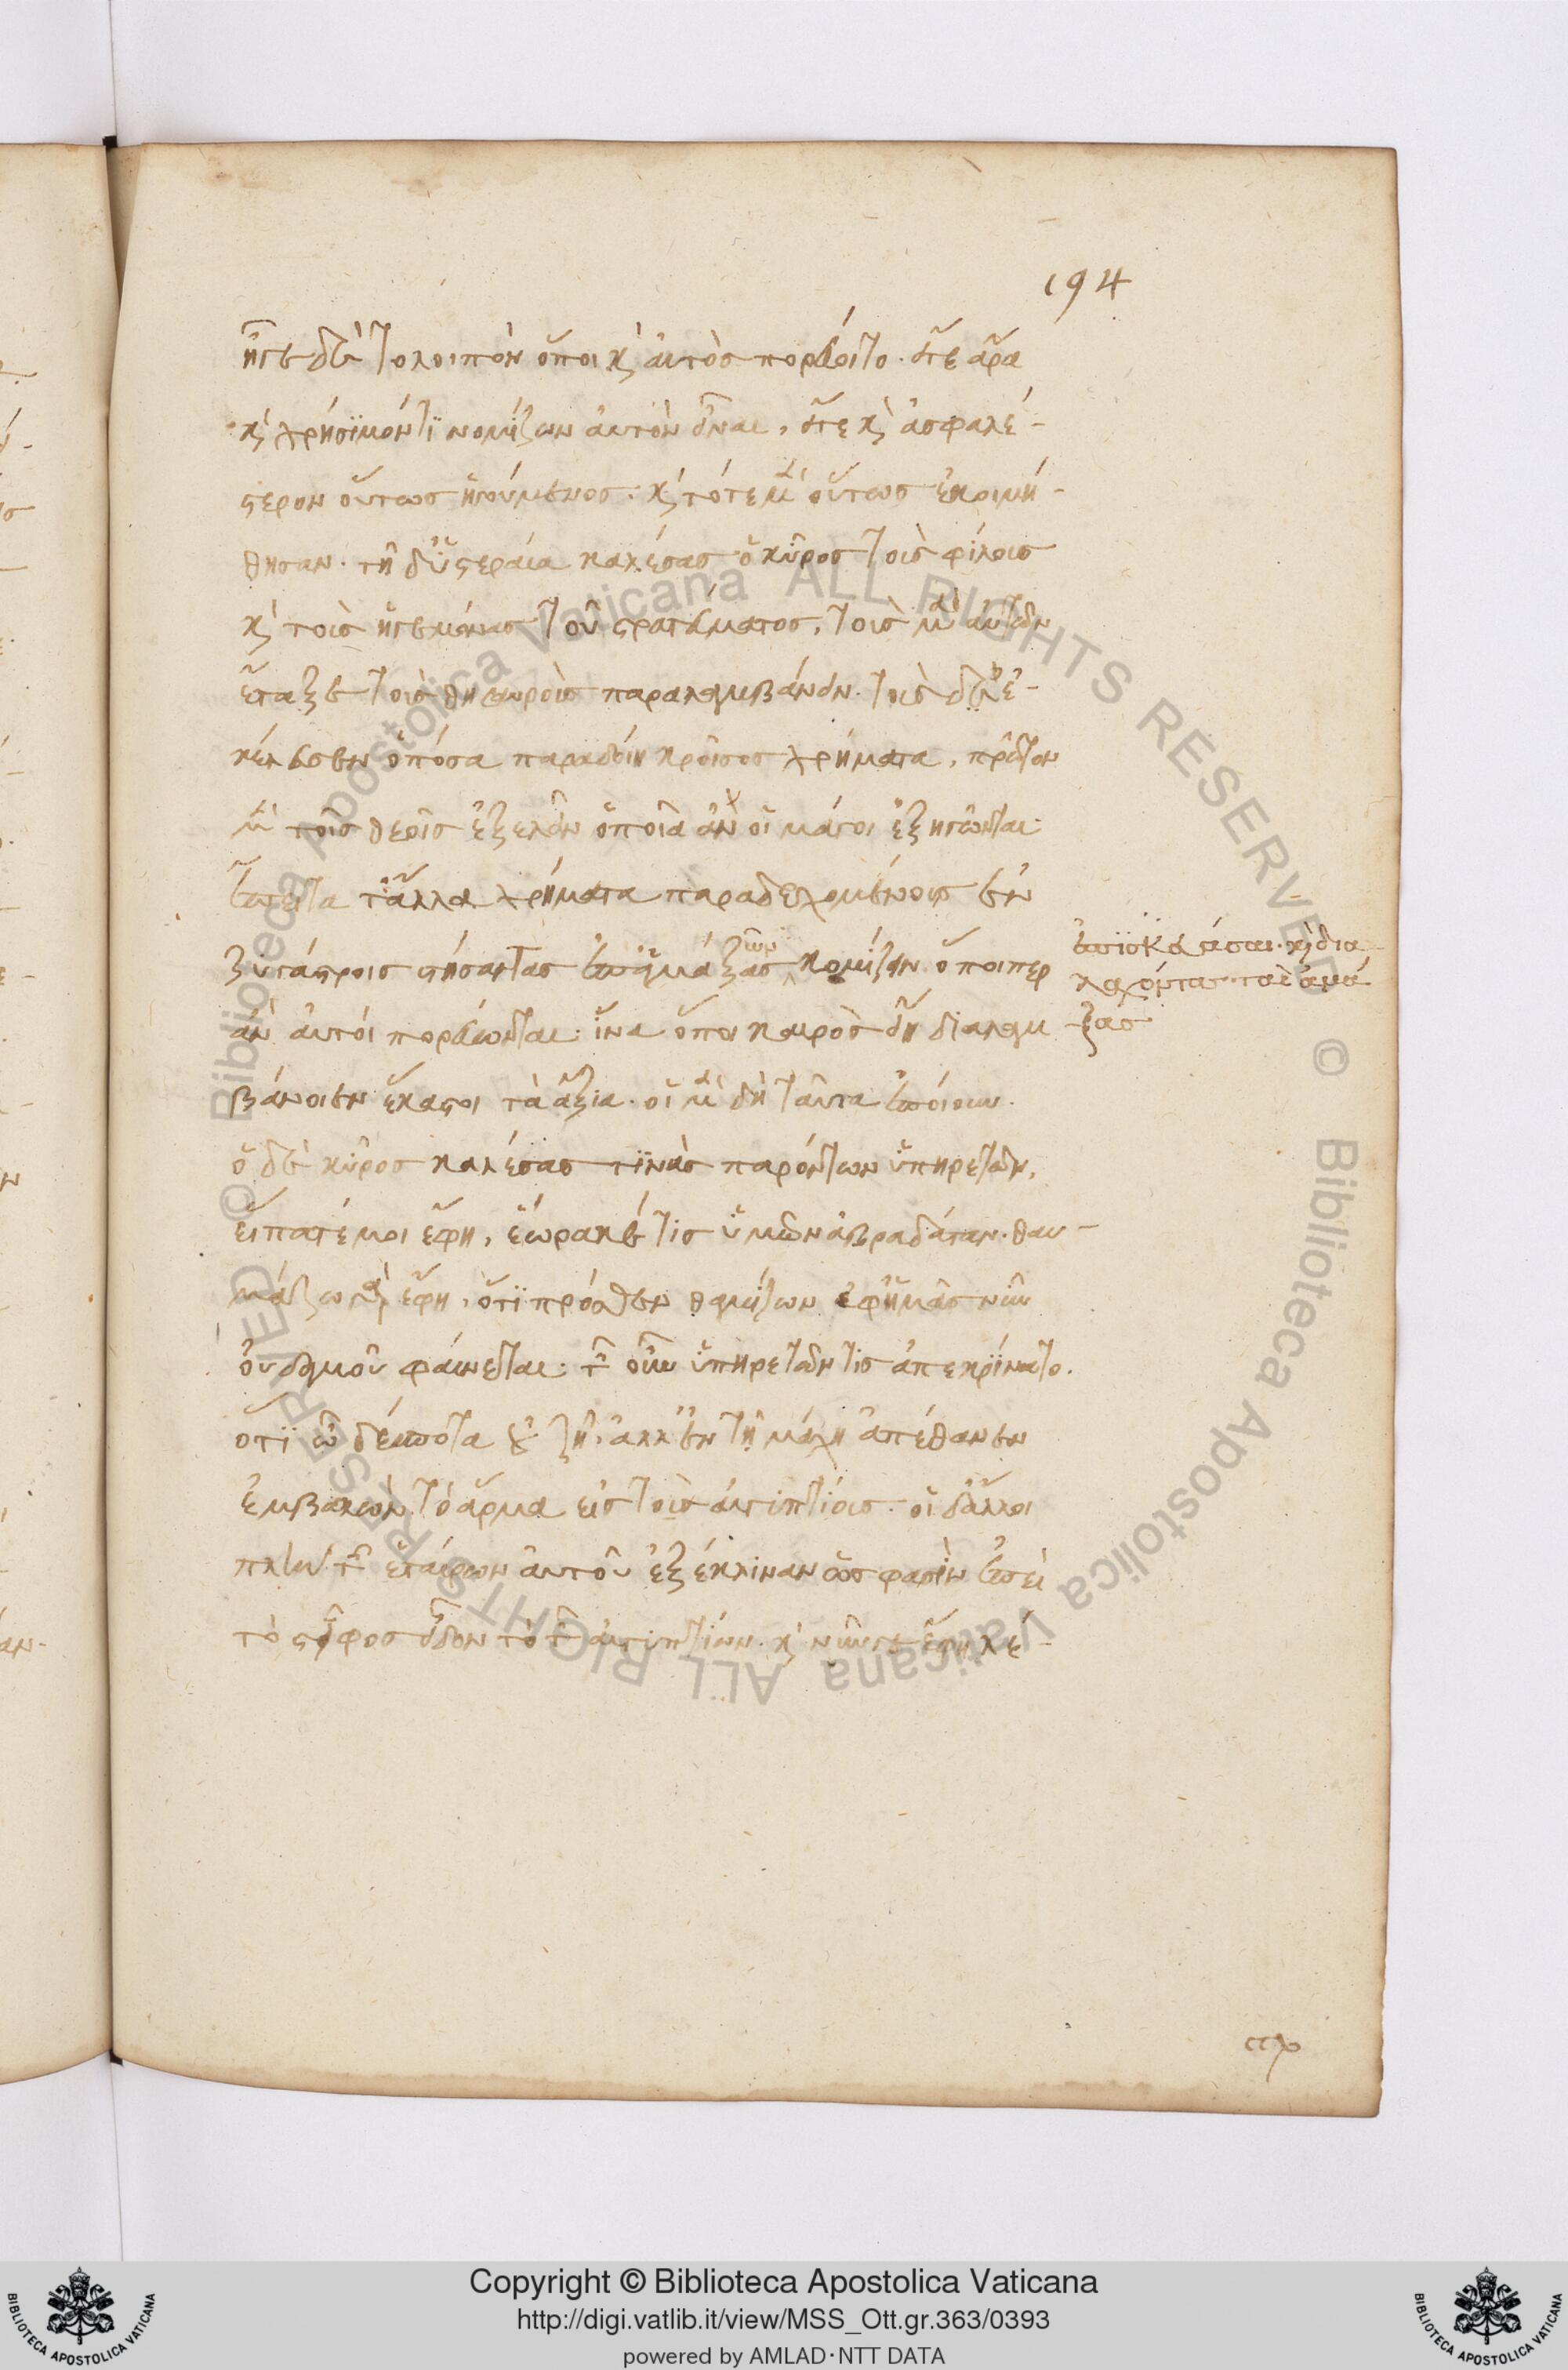 194
ἦγε δὲ τὸ λοιπὸν ὅποι καὶ αὐτὸς πορεύοιτο. εἴτε ἄρα
καὶ χρήσιμόν τι νομίζων αὐτὸν εἶναι, εἴτε καὶ ἀσφαλέ-
στερον οὕτως ἡγούμενος. καὶ τότε μὲν οὕτως ἐκοιμή-
θησαν. τῇ δ' ὑστεραία καλέσας ὁ κῦρος τοὺς φίλους
καὶ τοὺς ἡγεμόνας τοῦ στρατεύματος, τοὺς μὲν αὐτῶν
ἔταξε τοὺς θησαυροὺς παραλαμβάνειν. τοὺς δὲ ἐ-
κέλευσεν ὁπόσα παραδοίη κροῖσος χρήματα, πρῶτον
μὲν τοῖς θεοῖς ἐξελεῖν ὁποῖα ἂν οἱ μάγοι ἐξηγῶνται.
ἔπειτα τἄλλα χρήματα παραδεχομένους ἐν
ζυγάστροις στήσαντας ἐφ' ἁμάξας κομίζειν ὅποιπερ
ἐπισκευάσαι. καὶ δια
λαχόντας τὰς ἁμά
ξας
ἂν αὐτοὶ πορεύωνται. ἵνα ὅπου καιρὸς εἴη διαλαμ
βάνοιεν ἕκαστοι τὰ ἄξια. οἱ μὲν δὴ ταῦτα ἐποίουν.
ὁ δὲ κῦρος καλέσας τινὰς παρόντων ὑπηρετῶν,
εἴπατέ μοι ἔφη, ἑώρακέ τις ὑμῶν ἀβραδάταν. θαυ-
μάζω γὰρ ἔφη, ὅτι πρόσθεν θαμίζων ἐφ' ἡμᾶς νῦν
οὐδαμοῦ φαίνεται. τῶν οὖν ὑπηρετῶν τις ἀπεκρίνατο.
ὅτι ὦ δέσποτα οὐ ζῇ. ἀλλ' ἐν τῇ μάχη ἀπέθανεν
ἐμβαλὼν τὸ ἅρμα εἰς τοὺς αἰγυπτίους. οἱ δ' ἄλλοι
πλὴν τῶν ἑταίρων αὐτοῦ ἐξέκλιναν ὥς φασιν ἐπεὶ
τὸ στῖφος εἶδον τὸ τῶν αἰγυπτίων. καὶ νῦν γε ἔφη λέ-
Copyright © Biblioteca Apostolica Vaticana
http://digi.vatlib.it/view/MSS_Ott.gr.363/0393
powered by AMLAD·NTT DATA